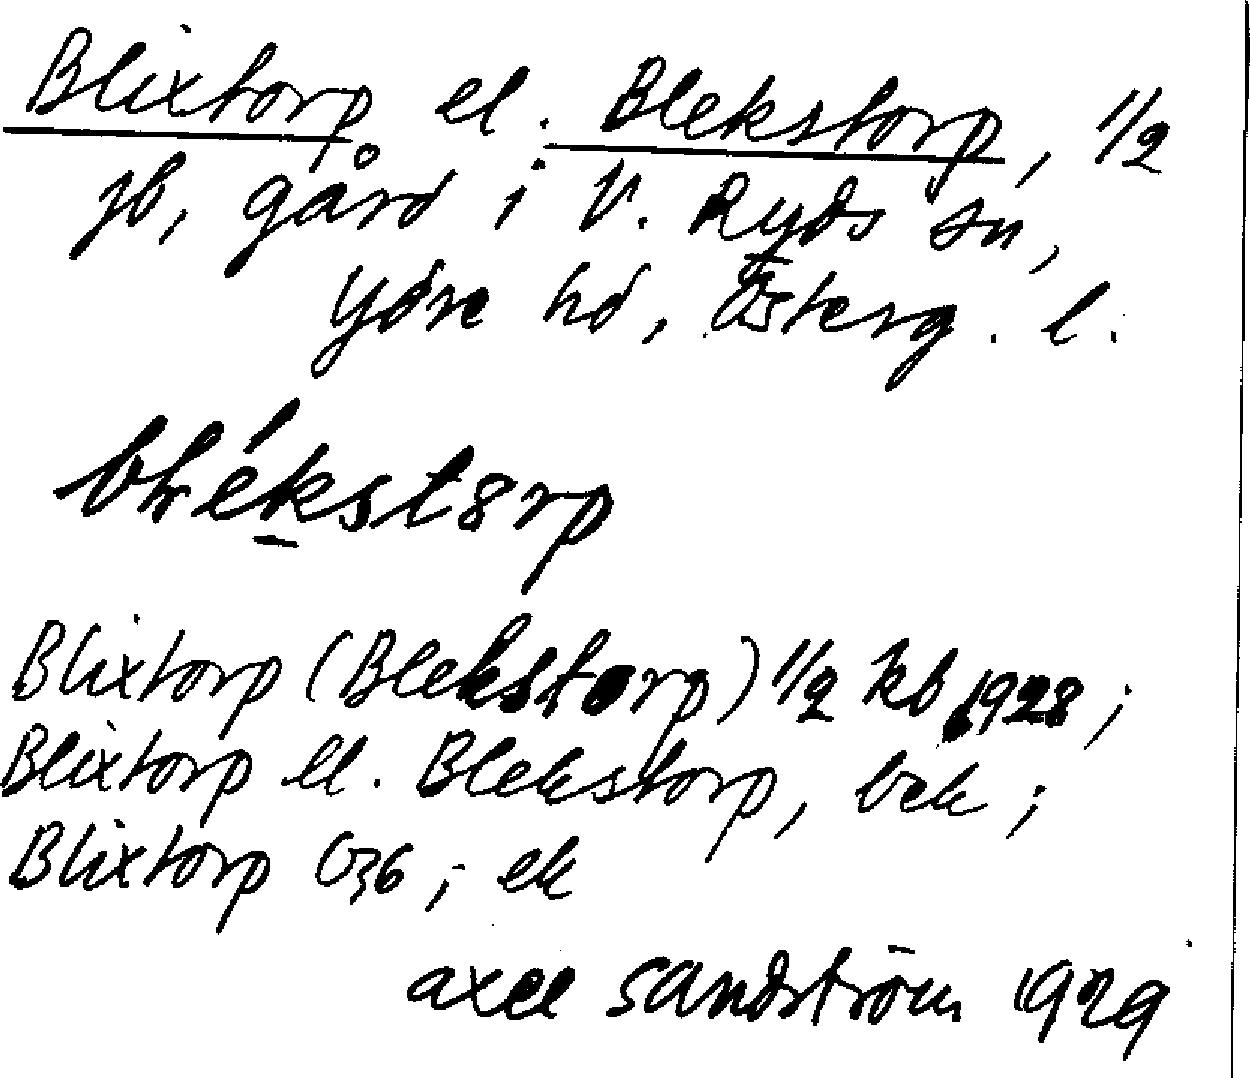 Blixtorp el. Blekstorp, 1/2
jb, gård i V. Ryds sn,
Ydre hd, Österg. l.
blékstorp
Blixtorp (Blekstorp) 1/2 kb 1928;
Blixtorp el. Blekstorp, bek;
Blixtorp G36; ek
axel sandström 1929